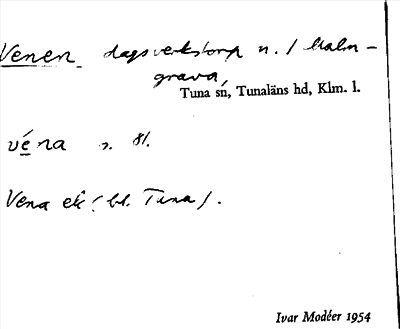 Venen dagsverkstorp n. / Malm-
grava,
Tuna sn, Tunaläns hd, Klm. l.
véna n. 81.
Vena ek (bl. Tuna).
Ivar Modéer 1954